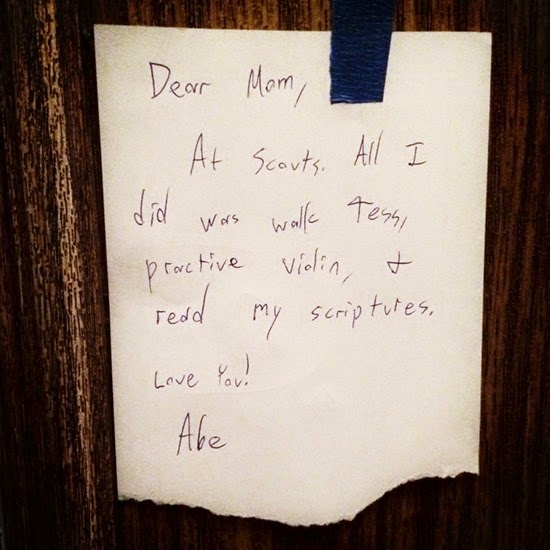 Dear Mom,
At Scouts. All I
did was walk Tess,
practive violin, +
read my scriptures.
Love You!
Abe